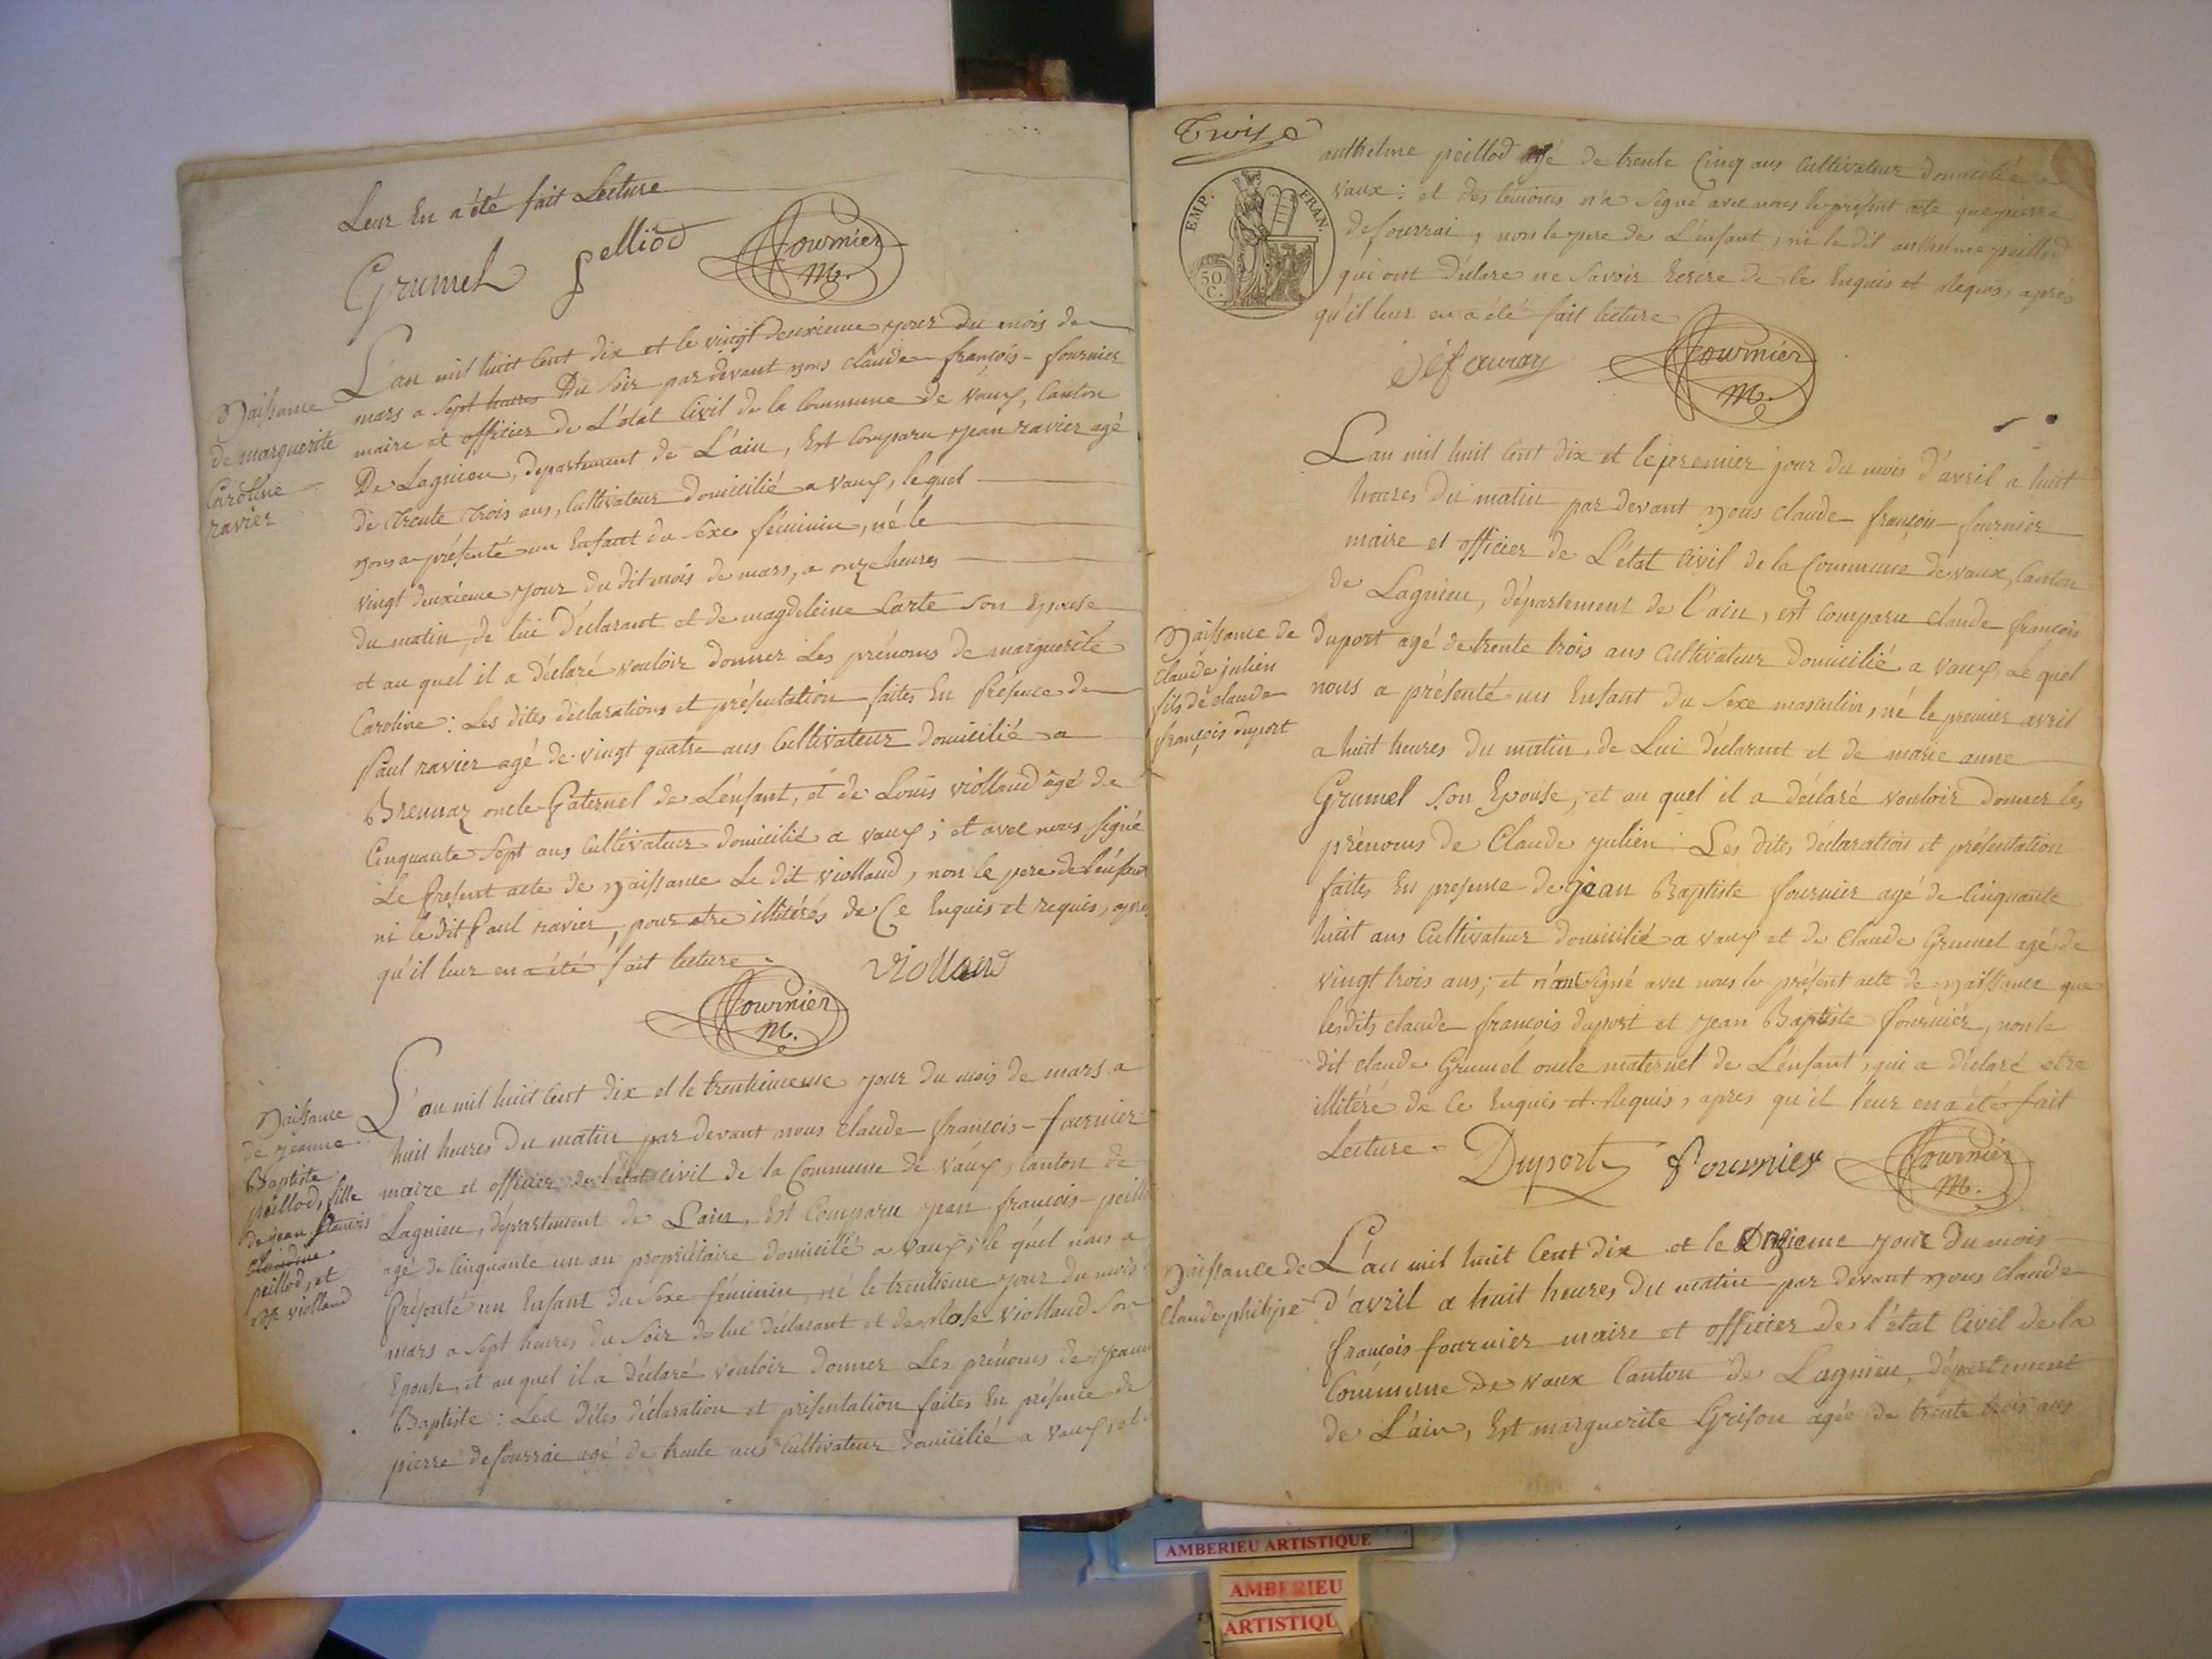 Leur En a été fait Lecture
Grumel pelliod fournier
M.
Naissance
de marguerite
Caroline
ravier
L'an mil huit Cent dix et le vingt deuxieme jour du mois de
mars a sept heures Du soir par devant nous claude françois fournier
maire et officier de L'état Civil de la Commune de vaux, Canton
De Lagnieu, département de L'ain, Est Comparu jean ravier agé
de trente trois ans, Cultivateur domicilié a vaux, lequel
nous a présenté un Enfant du sexe féminin, né le
vingt deuxieme jour du dit mois de mars, a onze heures
du matin, de lui déclarant et de magdeleine Sarte son Epouse
et au quel il a déclaré vouloir donner Les prénoms de marguerite
Caroline : Les dites déclarations et présentation faites En présence de
Paul ravier agé de vingt quatre ans Cultivateur domicilié a
Brennaz oncle Paternel de L'enfant, et de Louis viollaud agé de
Cinquante sept ans Cultivateur domicilié a vaux ; et avec nous signé
Le présent acte de naissance Le dit viollaud, non le pere de l'enfant
ni le dit Paul ravier, pour etre illitérés de Ce Enquis et requis, apres
qu'il leur en a été fait lecture.
viollaud
fournier
M.
Naissance
de jeanne
Baptiste
peillod, fille
de jean francois
claudine
peillod, et
rose viollaud
L'an mil huit Cent dix et le trentiemeeme jour du mois de mars a
huit heures Du matin par devant nous Claude françois - fournier
maire et officier de l'état civil de la Commune de vaux, Canton de
Lagnieu, département de Lain, Est Comparu jean francois - peillo
agé de Cinquante un an propriétaire domicilié a vaux, le quel nous a
Présenté un Enfant du sexe féminin, né le trentieme jour du mois
mars a sept heures du soir de lui déclarant et de Rose viollaud son
Epouse, et au quel il a déclaré vouloir donner Les prénoms de jeanne
Baptiste : Les dites déclaration et présentation faites En présence de
pierre defourrai agé de trente ans Cultivateur domicilié a vaux, et d
Troise
EMP. FRAN.
50
C.
anthelme peillod agé de trente Cinq ans Cultivateur domicilié a
vaux : et des temoins n'a signé avec nous le présent acte que pierre
defourrai, non le pere de L'enfant, ni le dit anthelme peillod
qui ont déclare ne savoir Ecrire de Ce Enquis et Requis, après
qu'il leur en a été fait lecture
défauray fournier
M.
Naissance de
Claude julien
fils dé claude
françois duport
L'an mil huit Cent dix et le premier jour du mois d'avril a huit
heures Du matin par devant nous claude françois - fournier
maire et officier de L'état Civil de la Commune dé vaux, Canton
de Lagnieu, département de l'ain, est Comparu claude françois
duport agé de trente trois ans Cultivateur domicilié a vaux, Le quel
nous a présenté un Enfant du sexe masculin, né le premier avril
a huit heures du matin de Lui déclarant et de marie anne
Grumel son Epouse, et au quel il a déclaré vouloir donner les
prénoms de Claude julien. Les dites déclaration et présentation
faites En présence de jean Baptiste fournier agé de Cinquante
huit ans Cultivateur domicilié a vaux et de Claude Grumel agé de
vingt trois ans ; et n'ont signé avec nous le présent acte de naissance que
lesdits claude françois duport et jean Baptiste fournier, non le
dit claude Grumel oncle maternel de L'enfant, qui a déclaré etre
illitéré de Ce Enquis et Requis, apres qu'il leur en a été fait
Lecture.
Duport fournier fournier
M.
Naissance de
Claude philipe
L'an mil huit Cent dix et le jour du mois
d'avril a huit heures du matin par devant nous Claude
françois fournier maire et officier de l'état Civil de la
Commune de vaux Canton de Lagnieu, département
de L'ain, Est marguerite Grison agée de trente trois ans
AMBERIEU ARTISTIQUE
AMBERIEU
ARTISTIQU